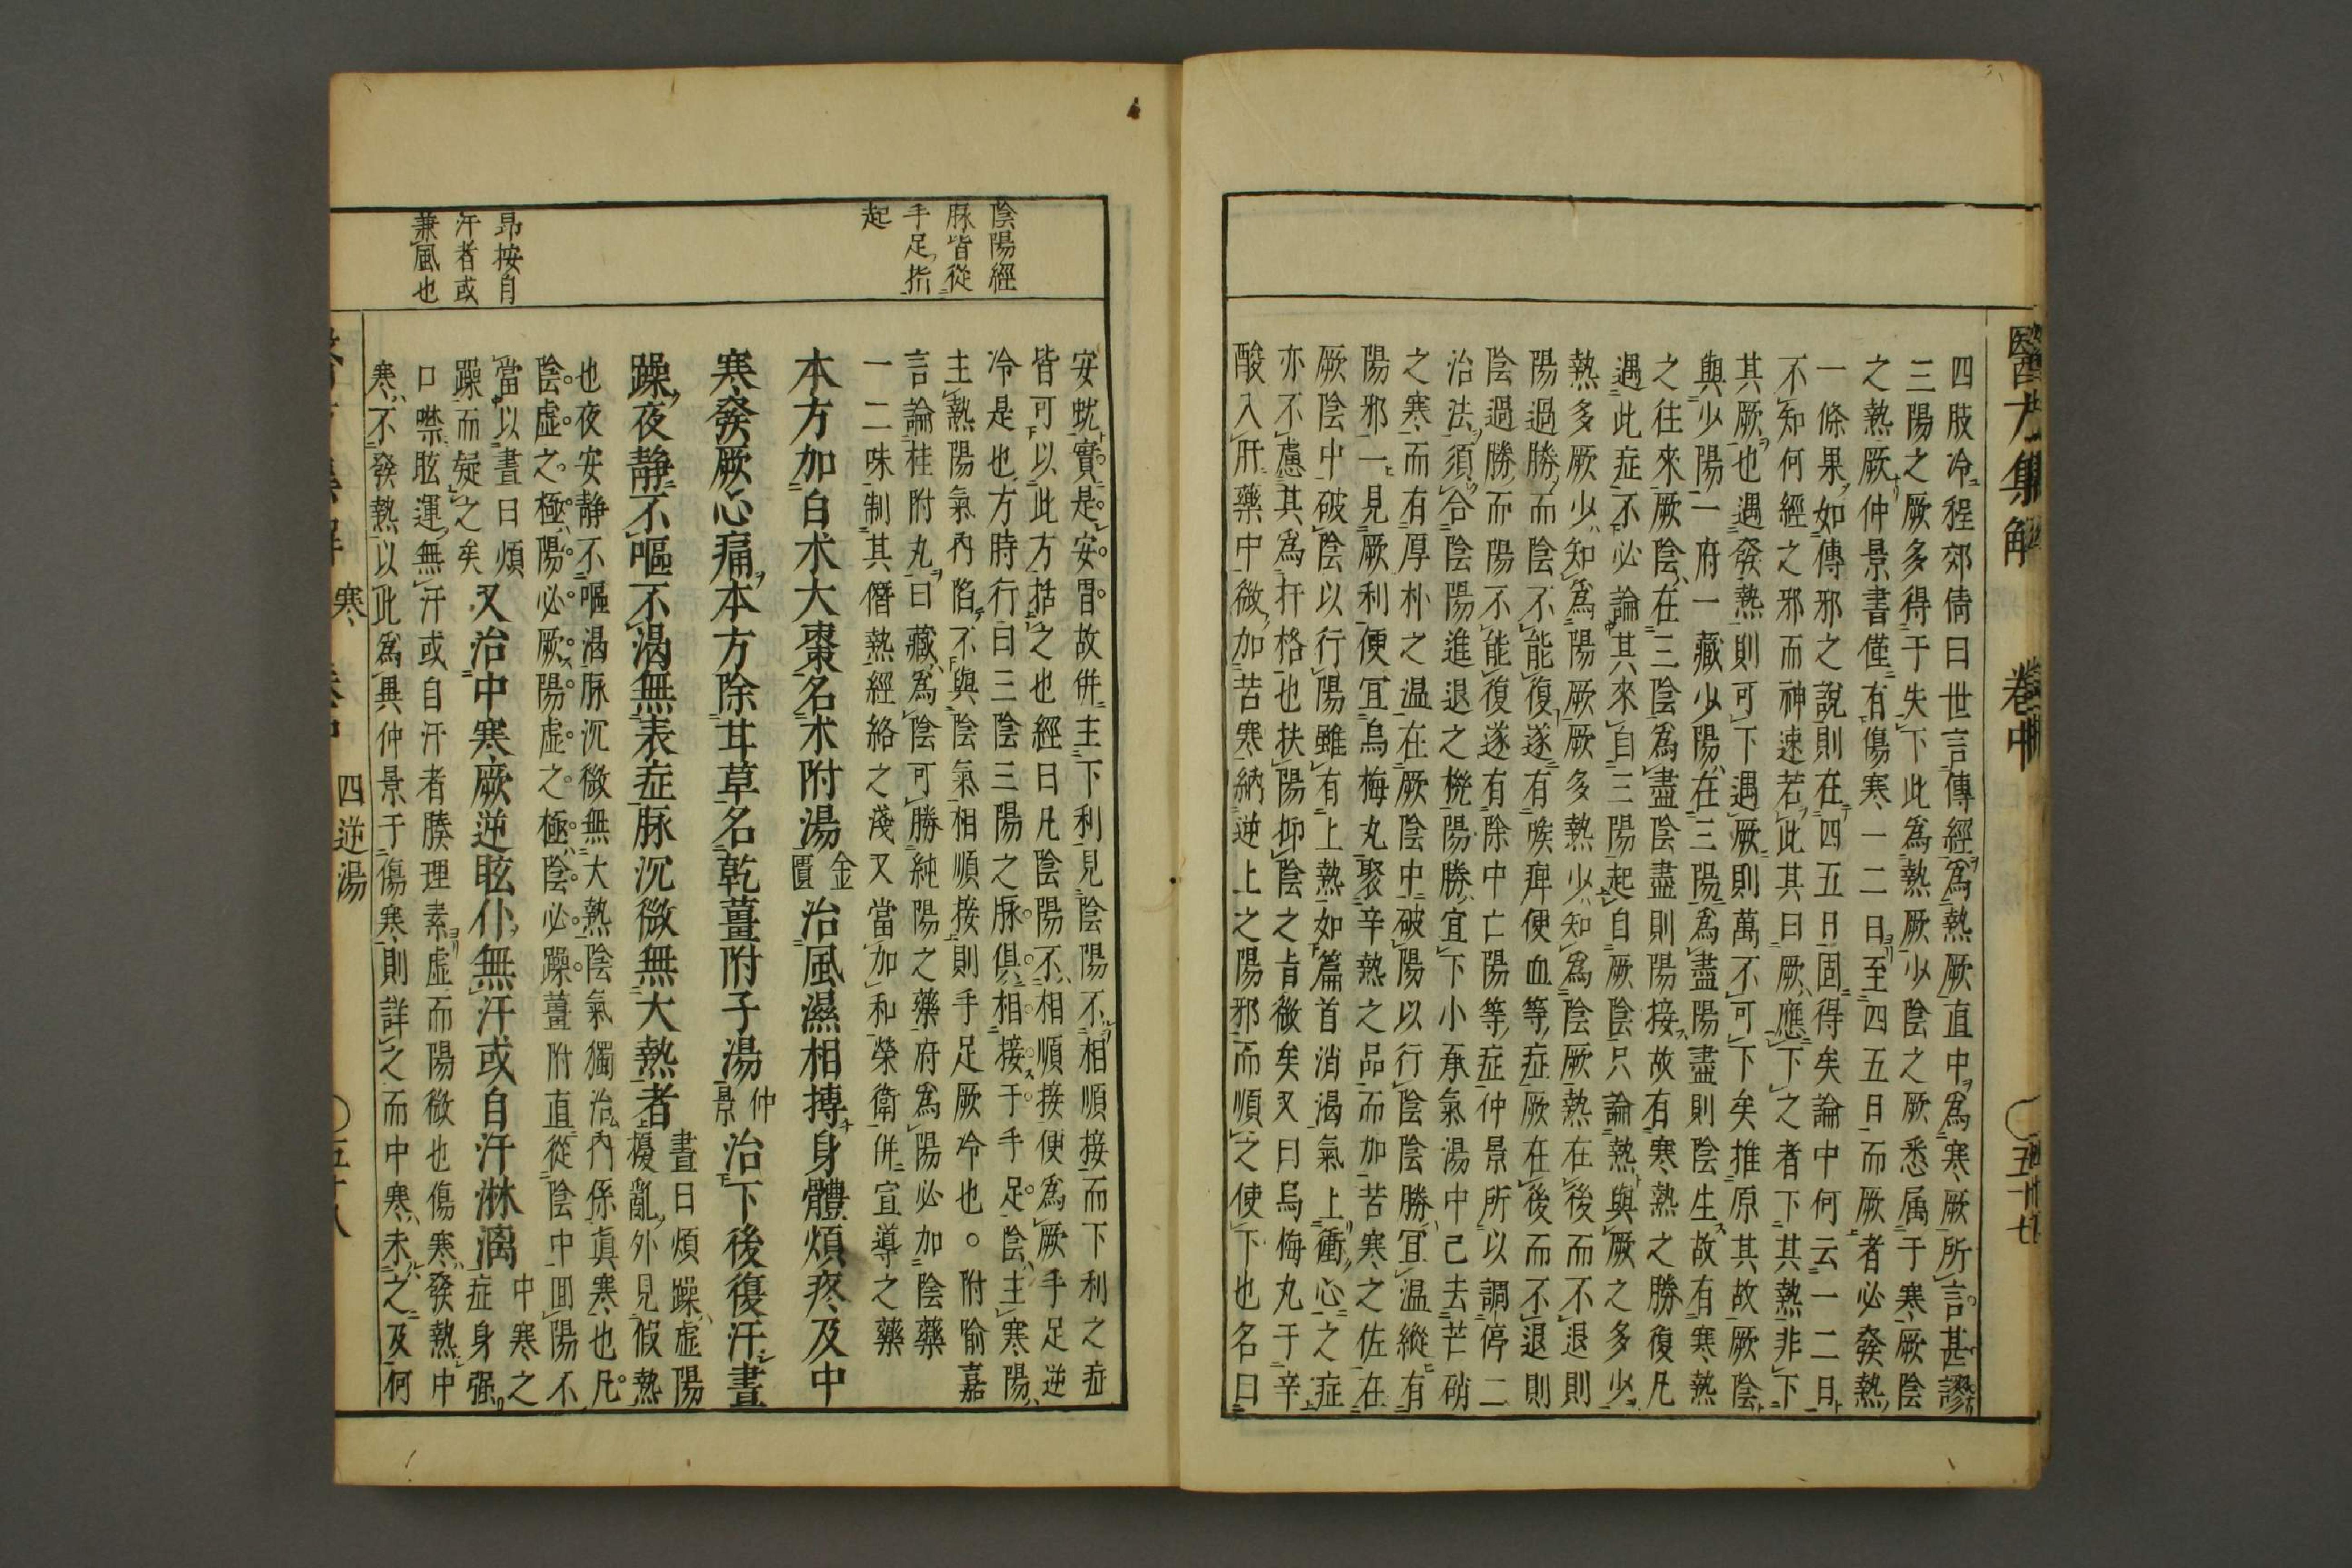 醫方集解
卷中
五十七
四肢冷程郊倩曰世言傳經爲熱厥直中爲寒厥所言甚謬
三陽之厥多得于失下此爲熱厥少陰之厥悉属于寒厥陰
之熱厥仲景書僅有傷寒一二日至四五日而厥者必發熱
一條果如傳邪之說則在四五日固得矣論中何云一二日
不知何經之邪而神速若此其曰厥應下之者下其熱非下
其厥也遇發熱則可下遇厥則萬不可下矣推原其故厥陰
與少陽一府一藏少陽在三陽爲盡陽盡則陰生故有寒熱
之往來厥陰在三陰爲盡陰盡則陽接故有寒熱之勝復凡
遇此症不必論其來自三陽起自厥陰只論熱與厥之多少
熱多厥少知爲陽厥厥多熱少知爲陰厥熱在後而不退則
陽過勝而陰不能復遂有喉痺便血等症厥在後而不退則
陰過勝而陽不能復遂有除中亡陽等症仲景所以調停二
治法須合陰陽進退之機陽勝宜下小承氣湯中已去芒硝
之寒而有厚朴之温在厥陰中破陽以行陰陰勝宜温縱有
陽邪一見厥利便宜烏梅丸聚辛熱之品而加苦寒之佐在
厥陰中破陰以行陽雖有上熱如篇首消渴氣上衝心之症
亦不慮其爲扞格也扶陽抑陰之旨微矣又曰烏梅丸于辛
酸入肝藥中微加苦寒納逆上之陽邪而順之使下也名曰
陰陽經
脉皆從
手足指
起
安蚘實是安胃故併主下利見陰陽不相順接而下利之症
皆可以此方括之也經曰凡陰陽不相順接便爲厥手足逆
冷是也方時行曰三陰三陽之脉俱相接于手足陰主寒陽
主熱陽氣內陷不與陰氣相順接則手足厥冷也。附喻嘉
言論桂附丸曰藏爲陰可勝純陽之藥府爲陽必加陰藥
一二味制其僭熱經絡之淺又當加和榮衛併宣導之藥
本方加白朮大棗名朮附湯金匱治風濕相搏身體煩疼及中
寒發厥心痛本方除甘草名乾薑附子湯仲景治下後復汗晝
躁夜静不嘔不渴無表症脉沉微無大熱者晝日煩躁虚陽擾亂外見假熱
也夜安静不嘔渴脉沉微無大熱陰氣獨治內係眞寒也凡
陰虚之極陽必厥陽虚之極陰必躁薑附直從陰中囬陽不
當以晝日煩躁而疑之矣又治中寒厥逆眩仆無汗或自汗淋漓中寒之症身强
口噤眩運無汗或自汗者腠理素虚而陽微也傷寒發熱中
寒不發熱以此爲異仲景于傷寒則詳之而中寒未之及何
昂按自
汗者或
兼風也
寒
四逆湯
五十八